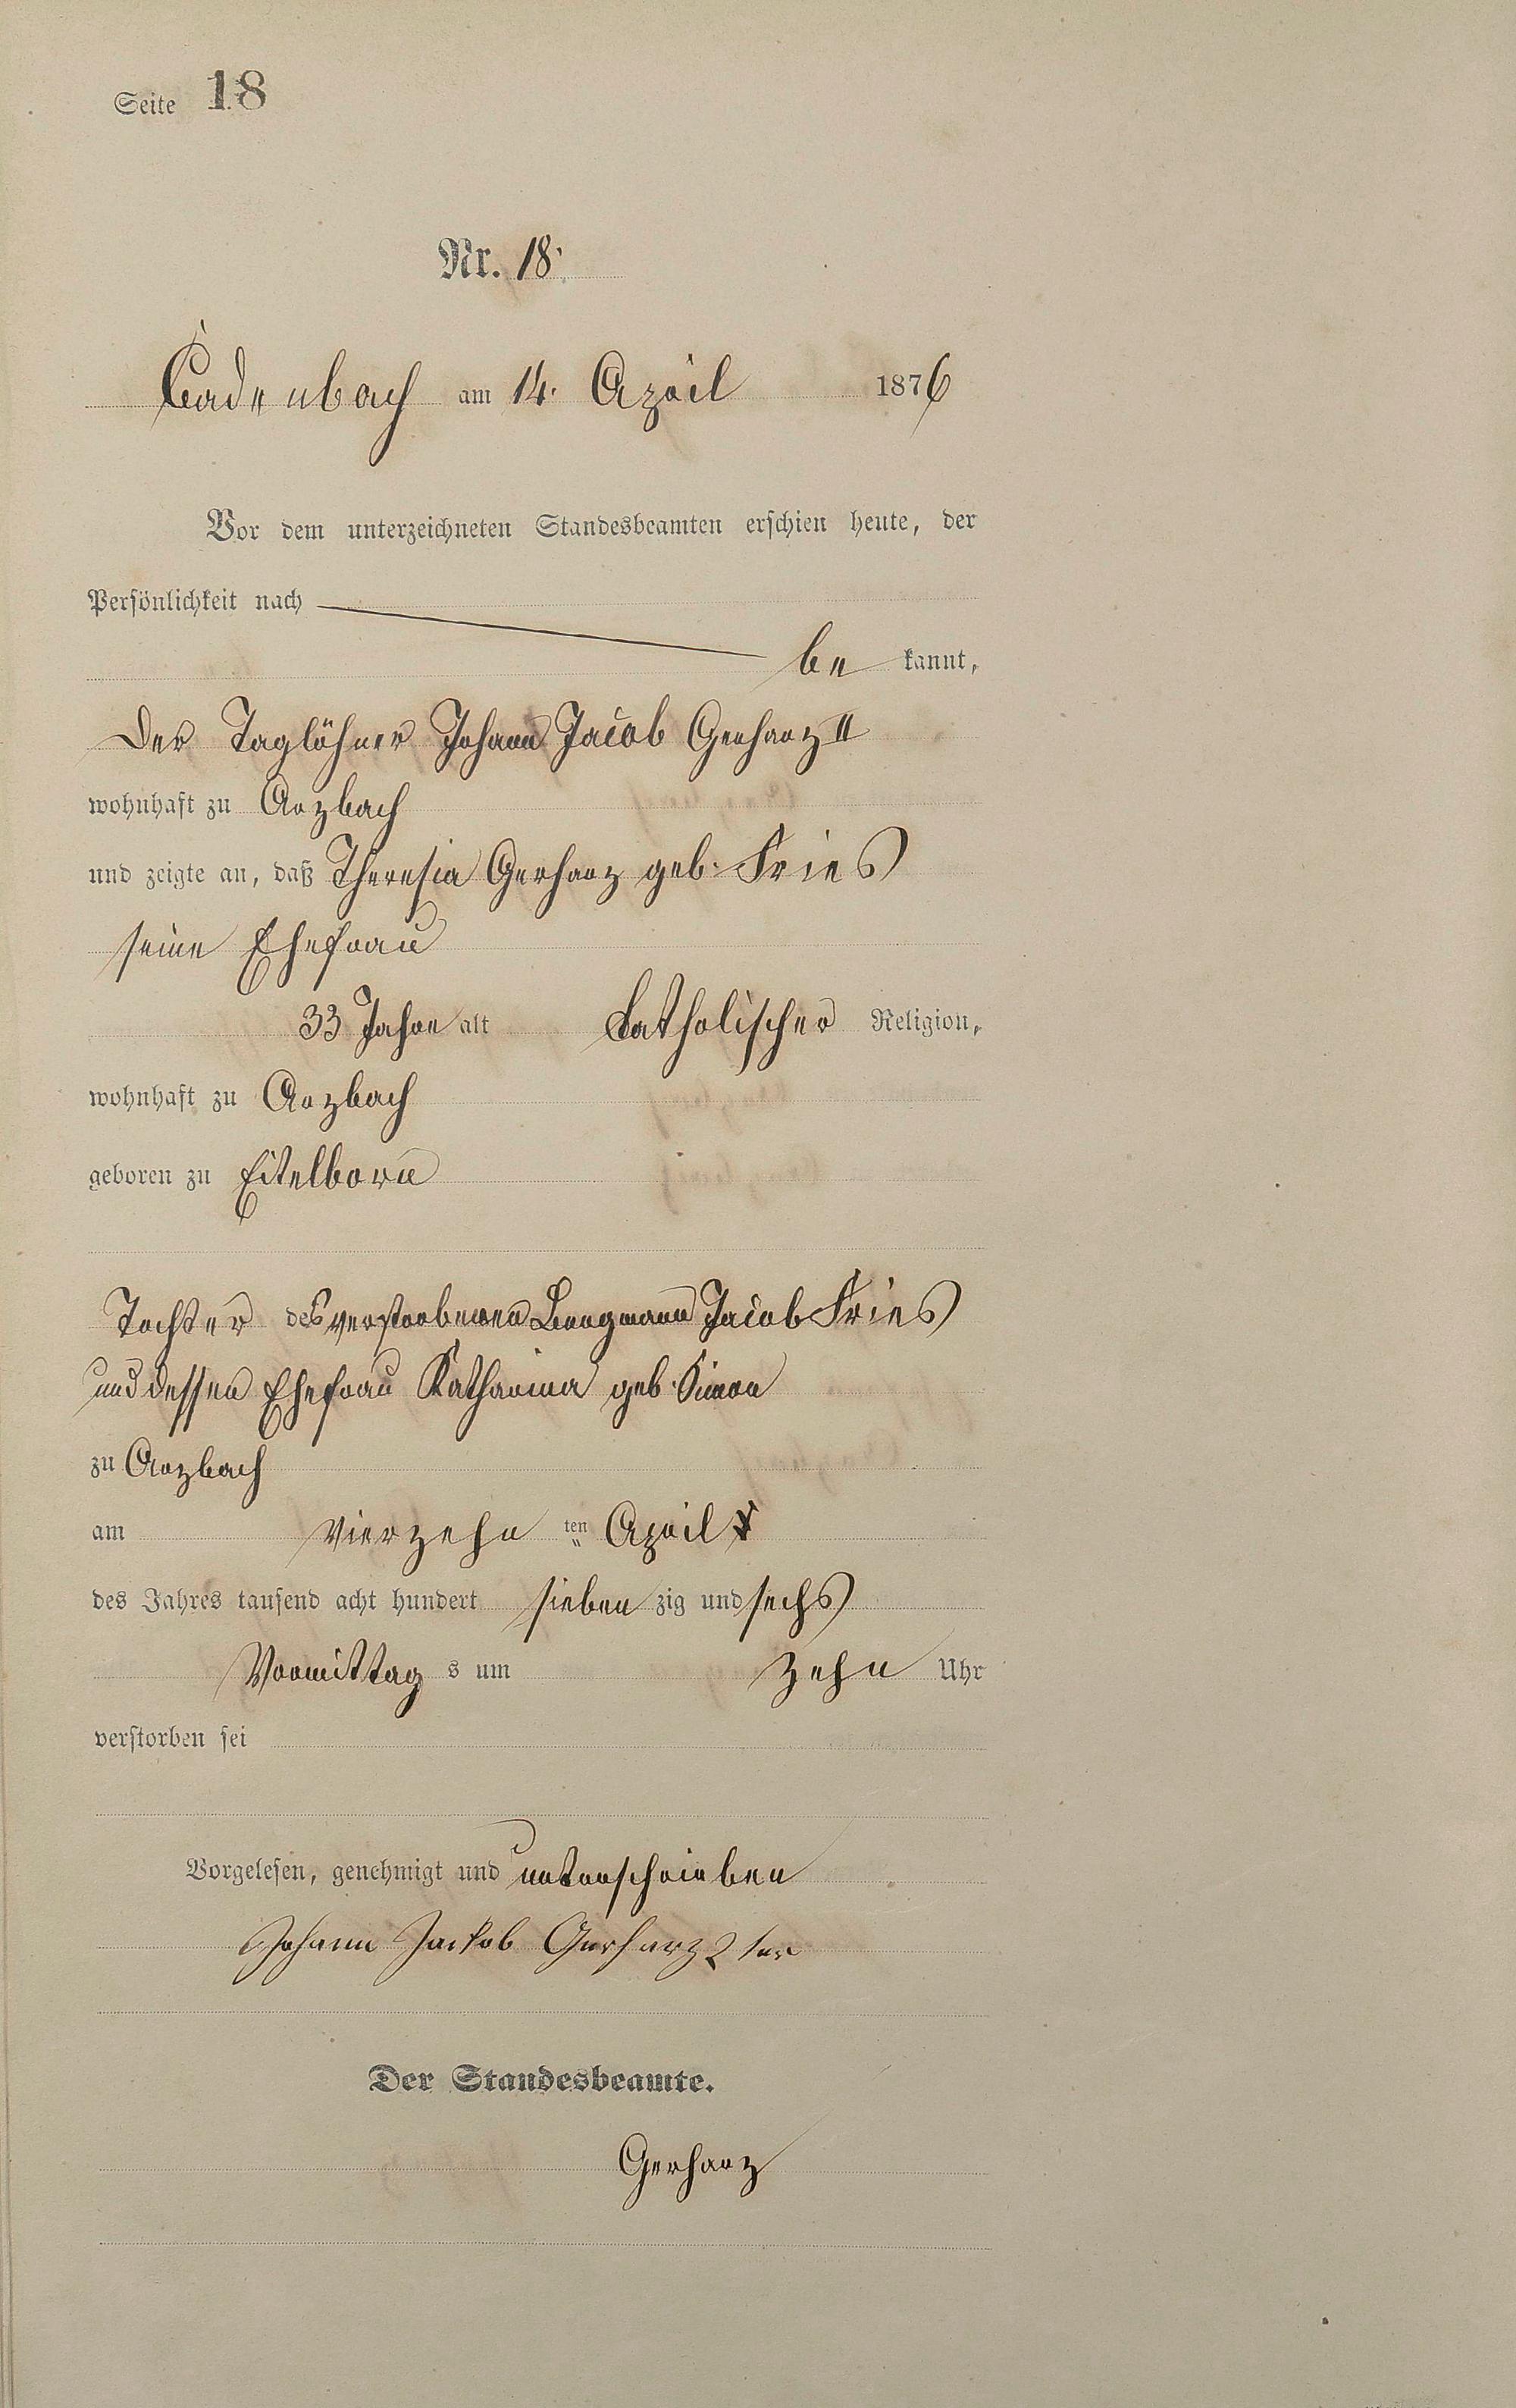 Seite 18
Nr. 18.
Cadenbach am 14. April 1876
Vor dem unterzeichneten Standesbeamten erschien heute, der
Persönlichkeit nach
be kannt,
Der Taglöhner Johann Jacob Gerharz II
wohnhaft zu Arzbach
und zeigte an, daß Theresia Gerharz geb. Fries
seine Ehefrau
33 Jahre alt Catholischer Religion,
wohnhaft zu Arzbach
geboren zu Eitelborn
Tochter des verstorbenen Bergmann Jacob Fries
und dessen Ehefrau Katharina geb. Simon
zu Arzbach
am vierzehn ten April
des Jahres tausend acht hundert sieben zig und sechs
Vormittag s um zehn Uhr
verstorben sei
Vorgelesen, genehmigt und unterschrieben
Johann Jackob Gerharz 2ter
Der Standesbeamte.
Gerharz